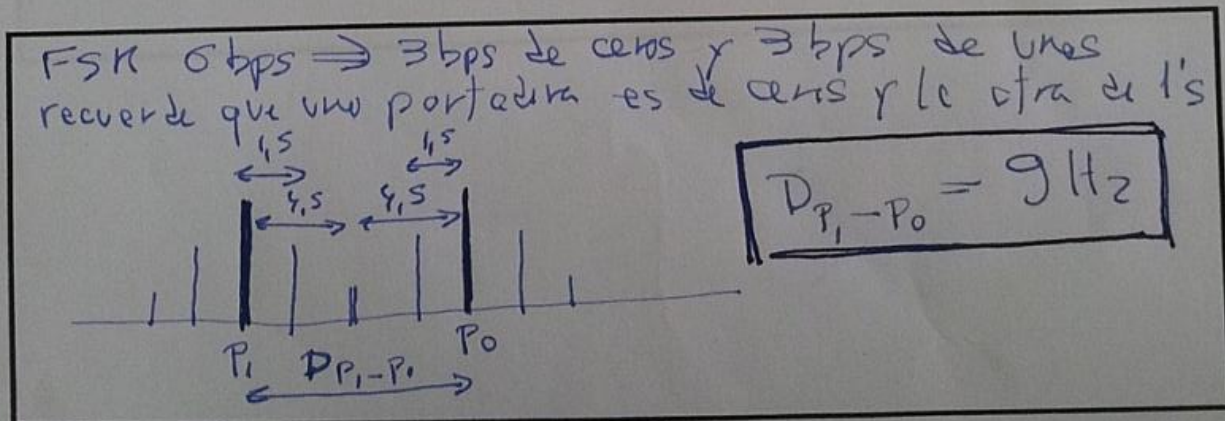 FSK 6 bps ⇒ 3 bps de ceros y 3 bps de unos
recuerde que una portadora es de ceros y la otra de 1's
1,5 1,5
4,5 4,5
P₁ P₀
D_{P₁-P₀}
D_{P₁-P₀} = 9 Hz